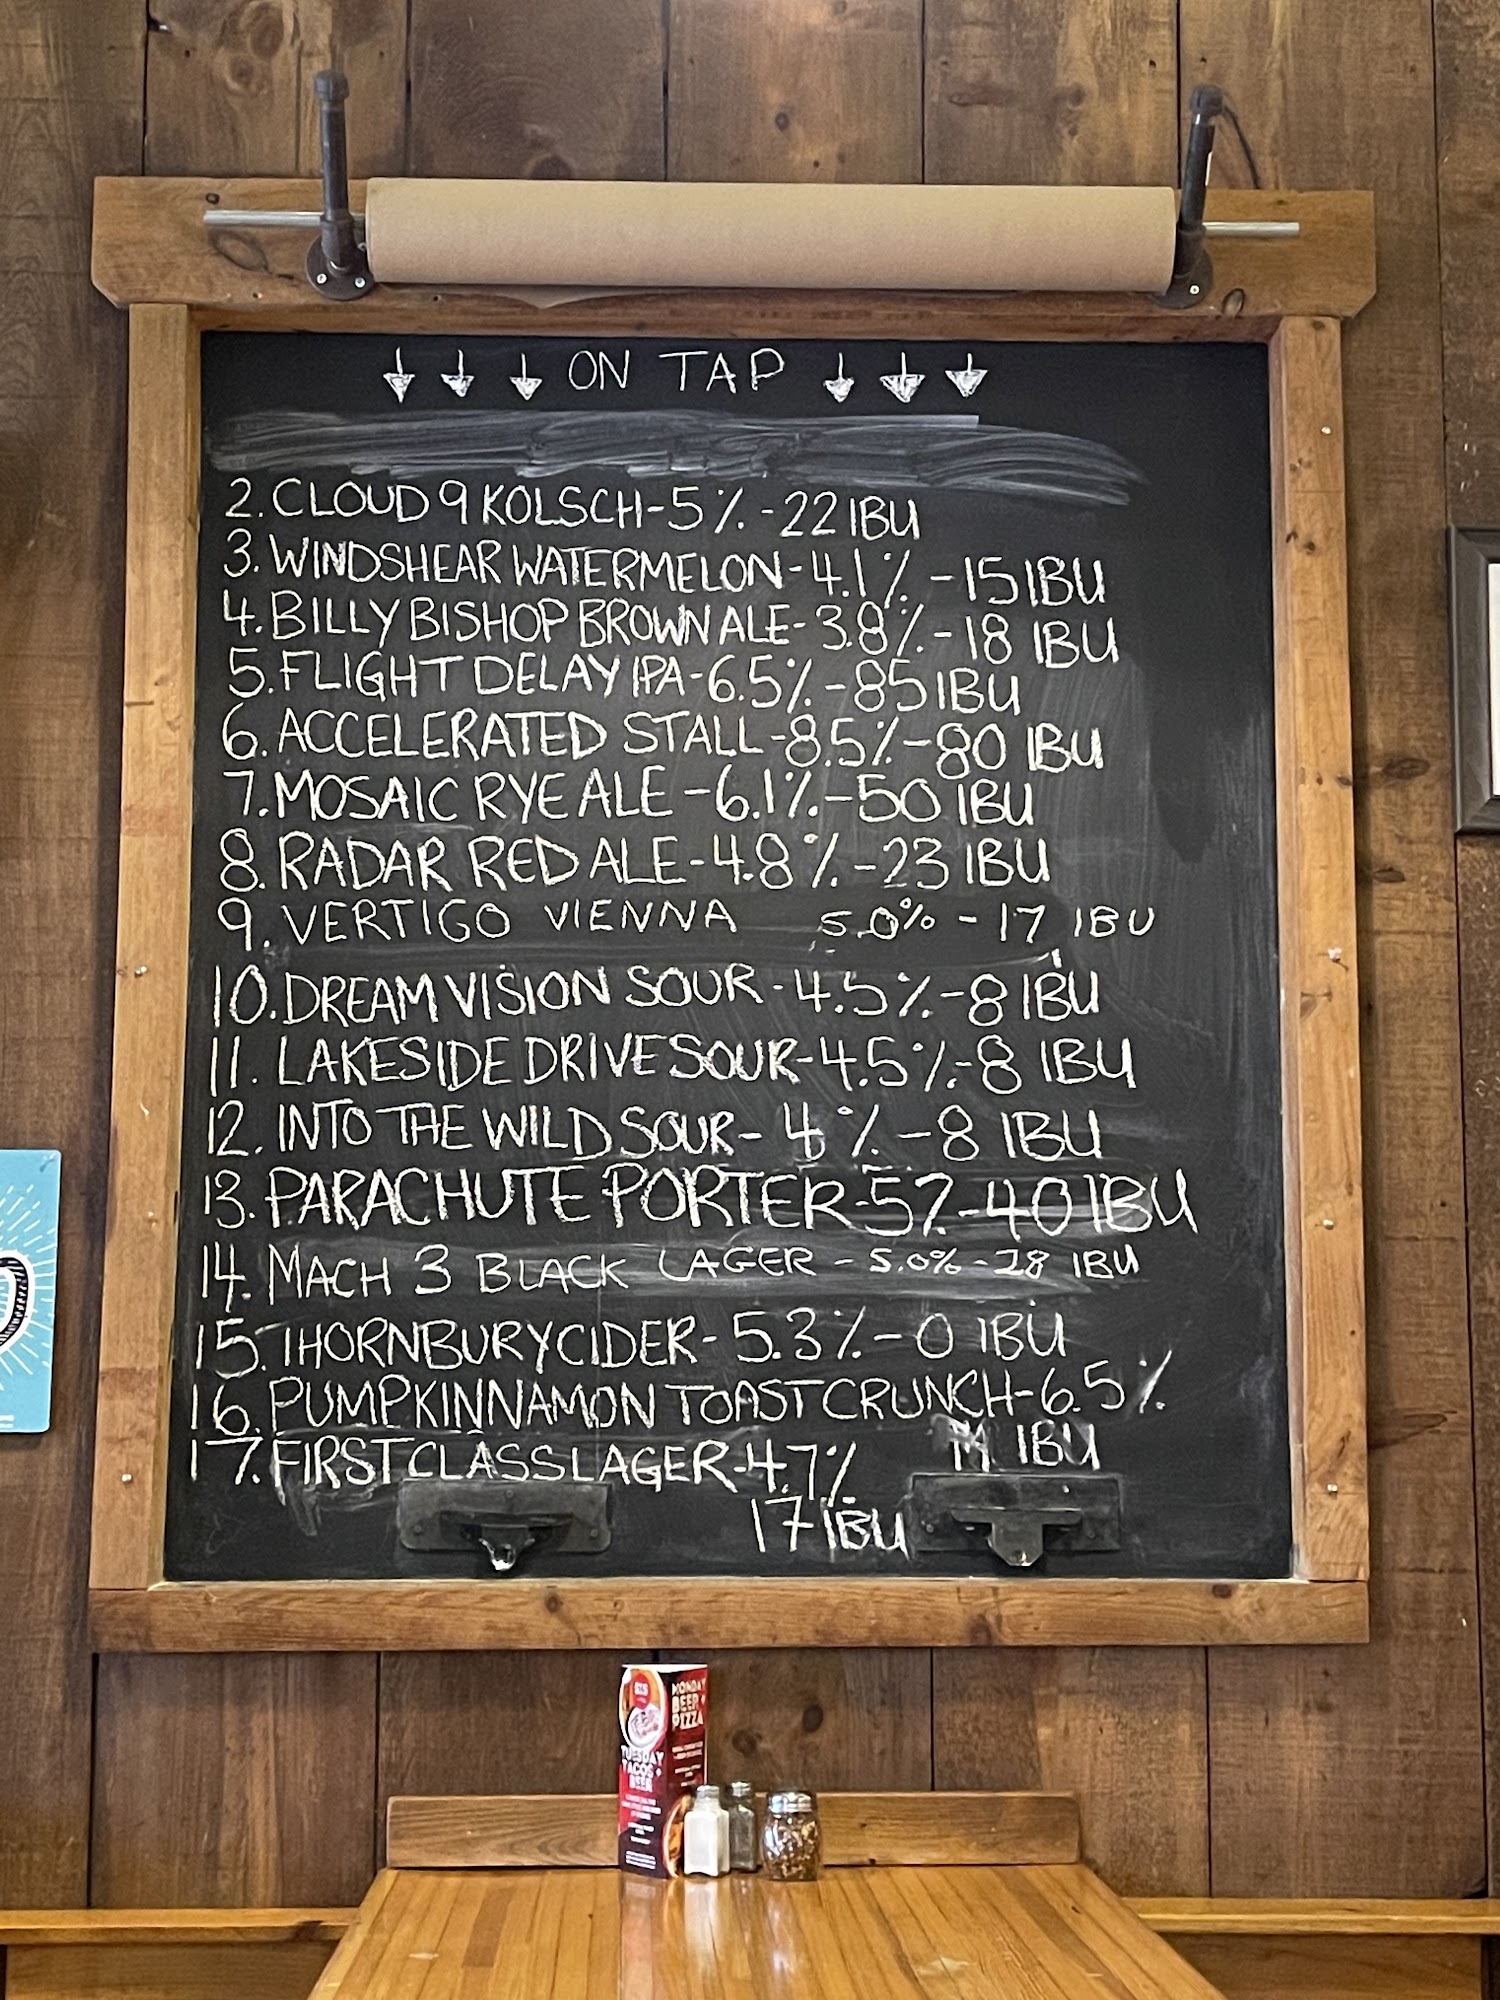 ON TAP
2. CLOUD 9 KOLSCH-5%-22 IBU
3. WINDSHEAR WATERMELON-4.1%-15 IBU
4. BILLY BISHOP BROWN ALE-3.8%-18 IBU
5. FLIGHT DELAY IPA-6.5%-85 IBU
6. ACCELERATED STALL-8.5%-80 IBU
7. MOSAIC RYE ALE-6.1%-50 IBU
8. RADAR RED ALE-4.8%-23 IBU
9. VERTIGO VIENNA 5.0%-17 IBU
10. DREAM VISION SOUR-4.5%-8 IBU
11. LAKESIDE DRIVE SOUR-4.5%-8 IBU
12. INTO THE WILD SOUR-4%-8 IBU
13. PARACHUTE PORTER-5%-40 IBU
14. MACH 3 BLACK LAGER-5.0%-28 IBU
15. THORNBURY CIDER-5.3%-0 IBU
16. PUMPKINNAMON TOAST CRUNCH-6.5%
IBU
17. FIRST CLASS LAGER-4.7%
17 IBU
MONDAY
BEER +
PIZZA
TUESDAY
TACOS +
BEER